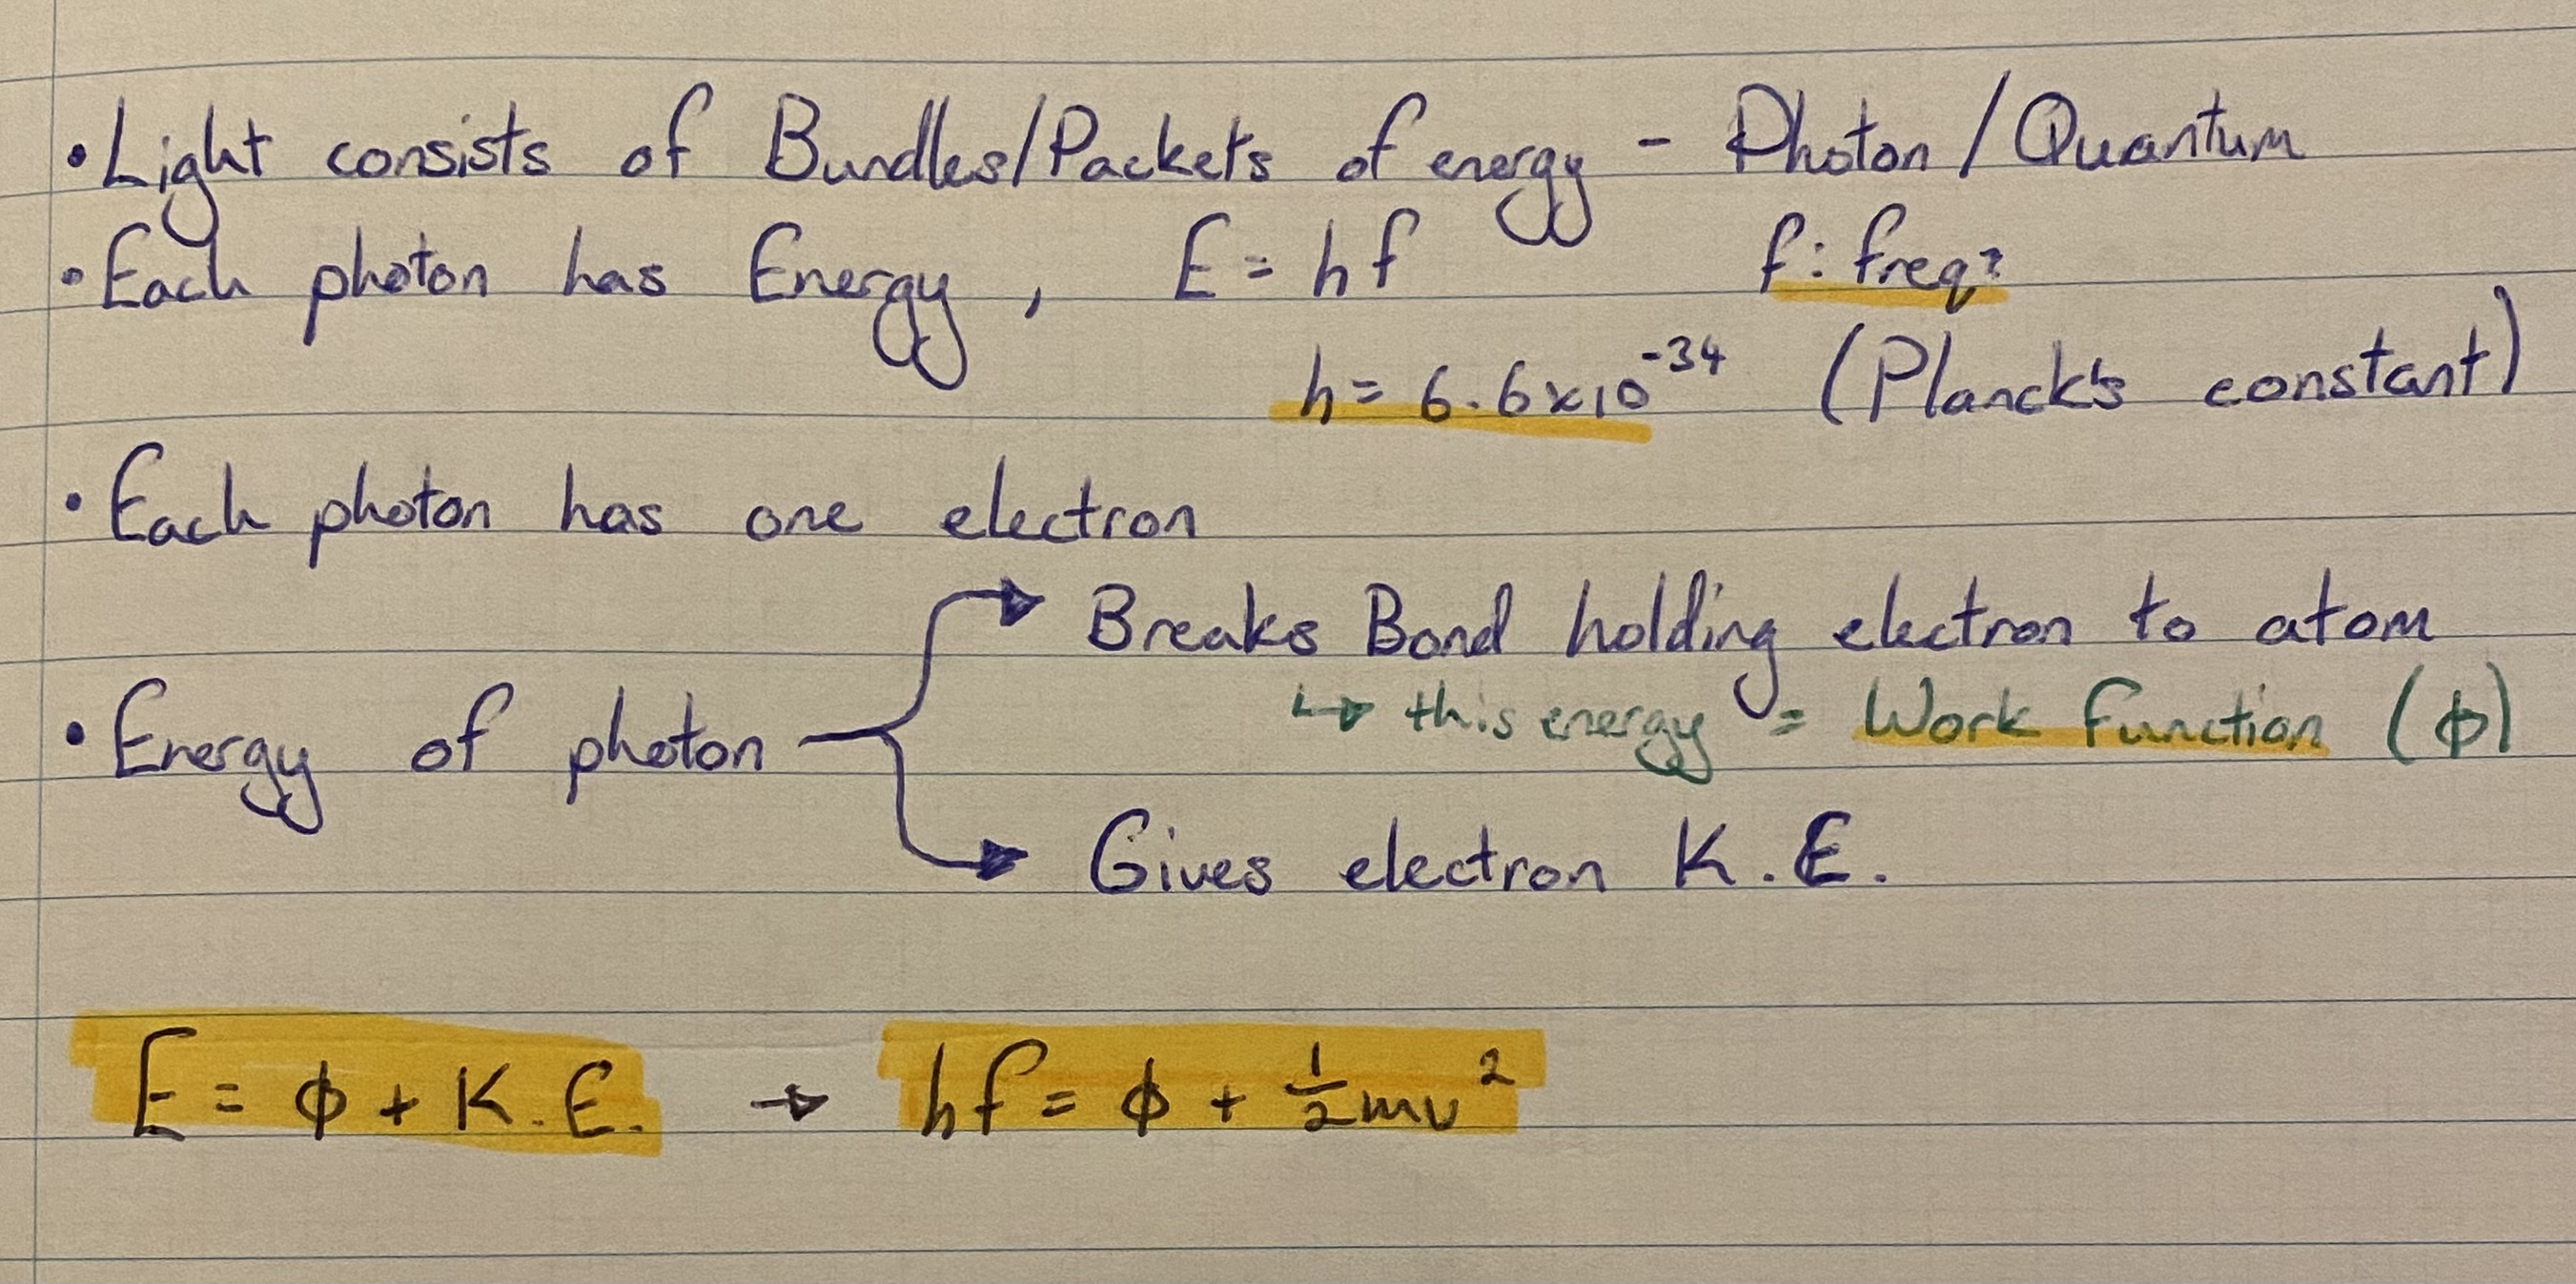 • Light consists of Bundles/Packets of energy - Photon / Quantum
• Each photon has Energy, E = hf f: freq?
h = 6.6x10⁻³⁴ (Planck's constant)
• Each photon has one electron
Breaks Bond holding electron to atom
↳ this energy = Work Function (ϕ)
• Energy of photon
Gives electron K.E.
E = ϕ + K.E. → hf = ϕ + ½mv²